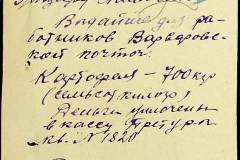 Выдайте для ра-
ботников Варваровс-
кой почты
Картофеля – 700 кгр
(семьсот килогр)
Деньги уплочены
в кассу Претуры
кв. № 1820